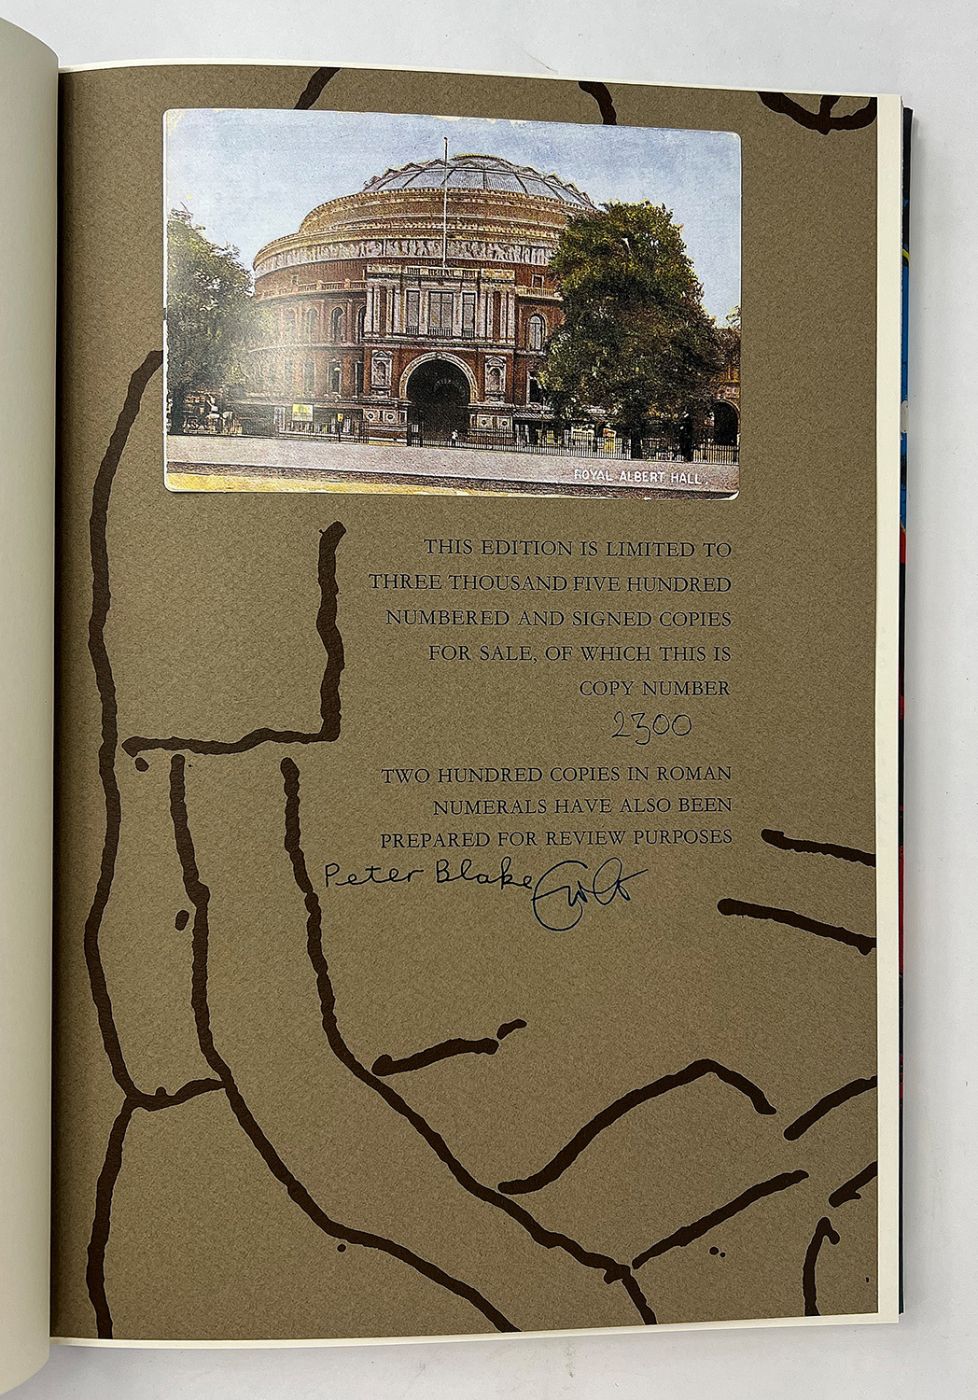 ROYAL ALBERT HALL.
THIS EDITION IS LIMITED TO
THREE THOUSAND FIVE HUNDRED
NUMBERED AND SIGNED COPIES
FOR SALE, OF WHICH THIS IS
COPY NUMBER
2300
TWO HUNDRED COPIES IN ROMAN
NUMERALS HAVE ALSO BEEN
PREPARED FOR REVIEW PURPOSES
Peter Blake